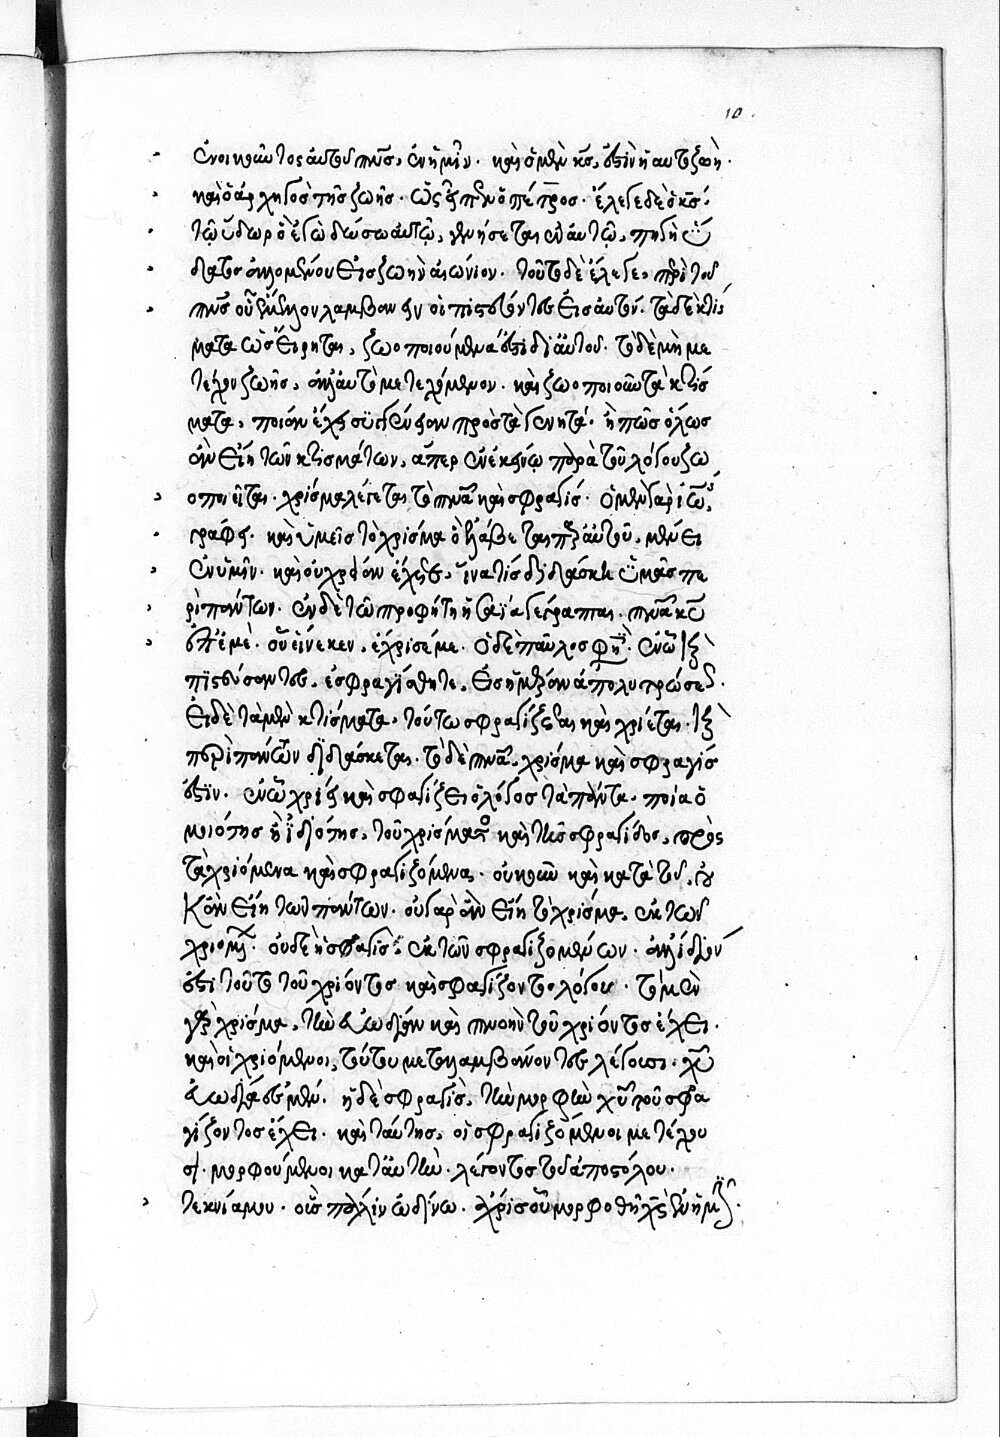 10.
ἐνοικοῦντος αὐτοῦ πνς, ἐν ἡμῖν. καὶ ὁ μὲν κς, ἐστὶν ἡ αὐτοζωὴ.
καὶ ὁ ἀρχηγὸς τῆς ζωῆς. ὡς εἶπεν ὁ πέτρος. ἔλεγε δὲ ὁ κς.
τῷ ὕδωρ ὃ ἐγὼ δώσω αὐτῷ, γενήσεται ἐν αὐτῷ, πηγὴ ὕ
δατος ἁλλομένου εἰς ζωὴν αἰώνιον. τοῦτο δὲ ἔλεγε, περὶ τοῦ
πνς οὗ ἔμελλον λαμβάνειν οἱ πιστεύοντες εἰς αὐτόν. τὰ δὲ κτίσ
ματα ὡς εἴρηται, ζωοποιούμενα ἐστὶ δι' αὐτοῦ. τὸ δὲ μὴ με
τέχον ζωῆς, ἀλλ' αὐτὸ μετεχόμενον. καὶ ζωοποιοῦν τὰ κτίσ
ματα, ποίαν ἔχει συγγένειαν πρὸς τὰ γενητά. ἢ πῶς ὅλως
ἂν εἴη τῶν κτισμάτων, ἅπερ ἐν ἐκείνῳ παρὰ τοῦ λόγου ζω
οποιεῖται. χρίσμα λέγεται τὸ πνα καὶ σφραγίς. ὁ μὲν γὰρ ἰω,
γράφει. καὶ ὑμεῖς τὸ χρίσμα ὃ ἐλάβεται παρ' αὐτοῦ, μένει
ἐν ὑμῖν. καὶ οὐ χρείαν ἔχετε, ἵνα τίς διδάσκῃ ὑμᾶς πε
ρὶ πάντων. ἐν δὲ τῷ προφήτῃ ἡσαΐα γέγραπται. πνα κυ
ἐπ' ἐμὲ. οὗ εἵνεκεν, ἔχρισέ με. ὁ δὲ παῦλος φη. ἐν ᾧ καὶ
πιστεύσαντες, ἐσφραγίσθητε, εἰς ἡμέραν ἀπολυτρώσεως.
εἰ δὲ τὰ μὲν κτίσματα, τούτω σφραγίζεται καὶ χρίεται. καὶ
περὶ πάντων διδάσκεται. τὸ δὲ πνα, χρίσμα καὶ σφραγίς
ἐστιν. ἐν ᾧ χρίει καὶ σφραγίζει ὁ λόγος τὰ πάντα. ποία ὁ
μοιότης ἢ ἰδιότης, τοῦ χρίσματος καὶ τῆς σφραγίδος, πρὸς
τὰ χριόμενα καὶ σφραγιζόμενα. οὐκοῦν καὶ κατὰ τοῦ. οὐ
κ ἂν εἴη τῶν πάντων. οὐ γὰρ ἂν εἴη τὸ χρίσμα, ἐκ τῶν
χριομένων. οὐδὲ ἡ σφραγὶς, ἐκ τῶν σφραγιζομένων. ἀλλ' ἴδιον
ἐστὶ τοῦτο τοῦ χρίοντος καὶ σφραγίζοντος λόγου. τὸ μὲν
γὰρ χρίσμα, τὴν εὐωδίαν καὶ πνοὴν τοῦ χρίοντος ἔχει.
καὶ οἱ χριόμενοι, τούτου μεταλαμβάνοντες λέγουσι. χυ
εὐωδία ἐσμέν. ἡ δὲ σφραγὶς, τὴν μορφὴν χυ τοῦ σφρα
γίζοντος ἔχει. καὶ ταύτης, οἱ σφραγιζόμενοι μετέχου
σι. μορφούμενοι κατ' αὐτὴν. λέγοντος τοῦ ἀποστόλου.
τεκνία μου. οὓς πάλιν ὠδίνω. ἄχρις οὗ μορφωθῇ χς ἐν ἡμῖν.